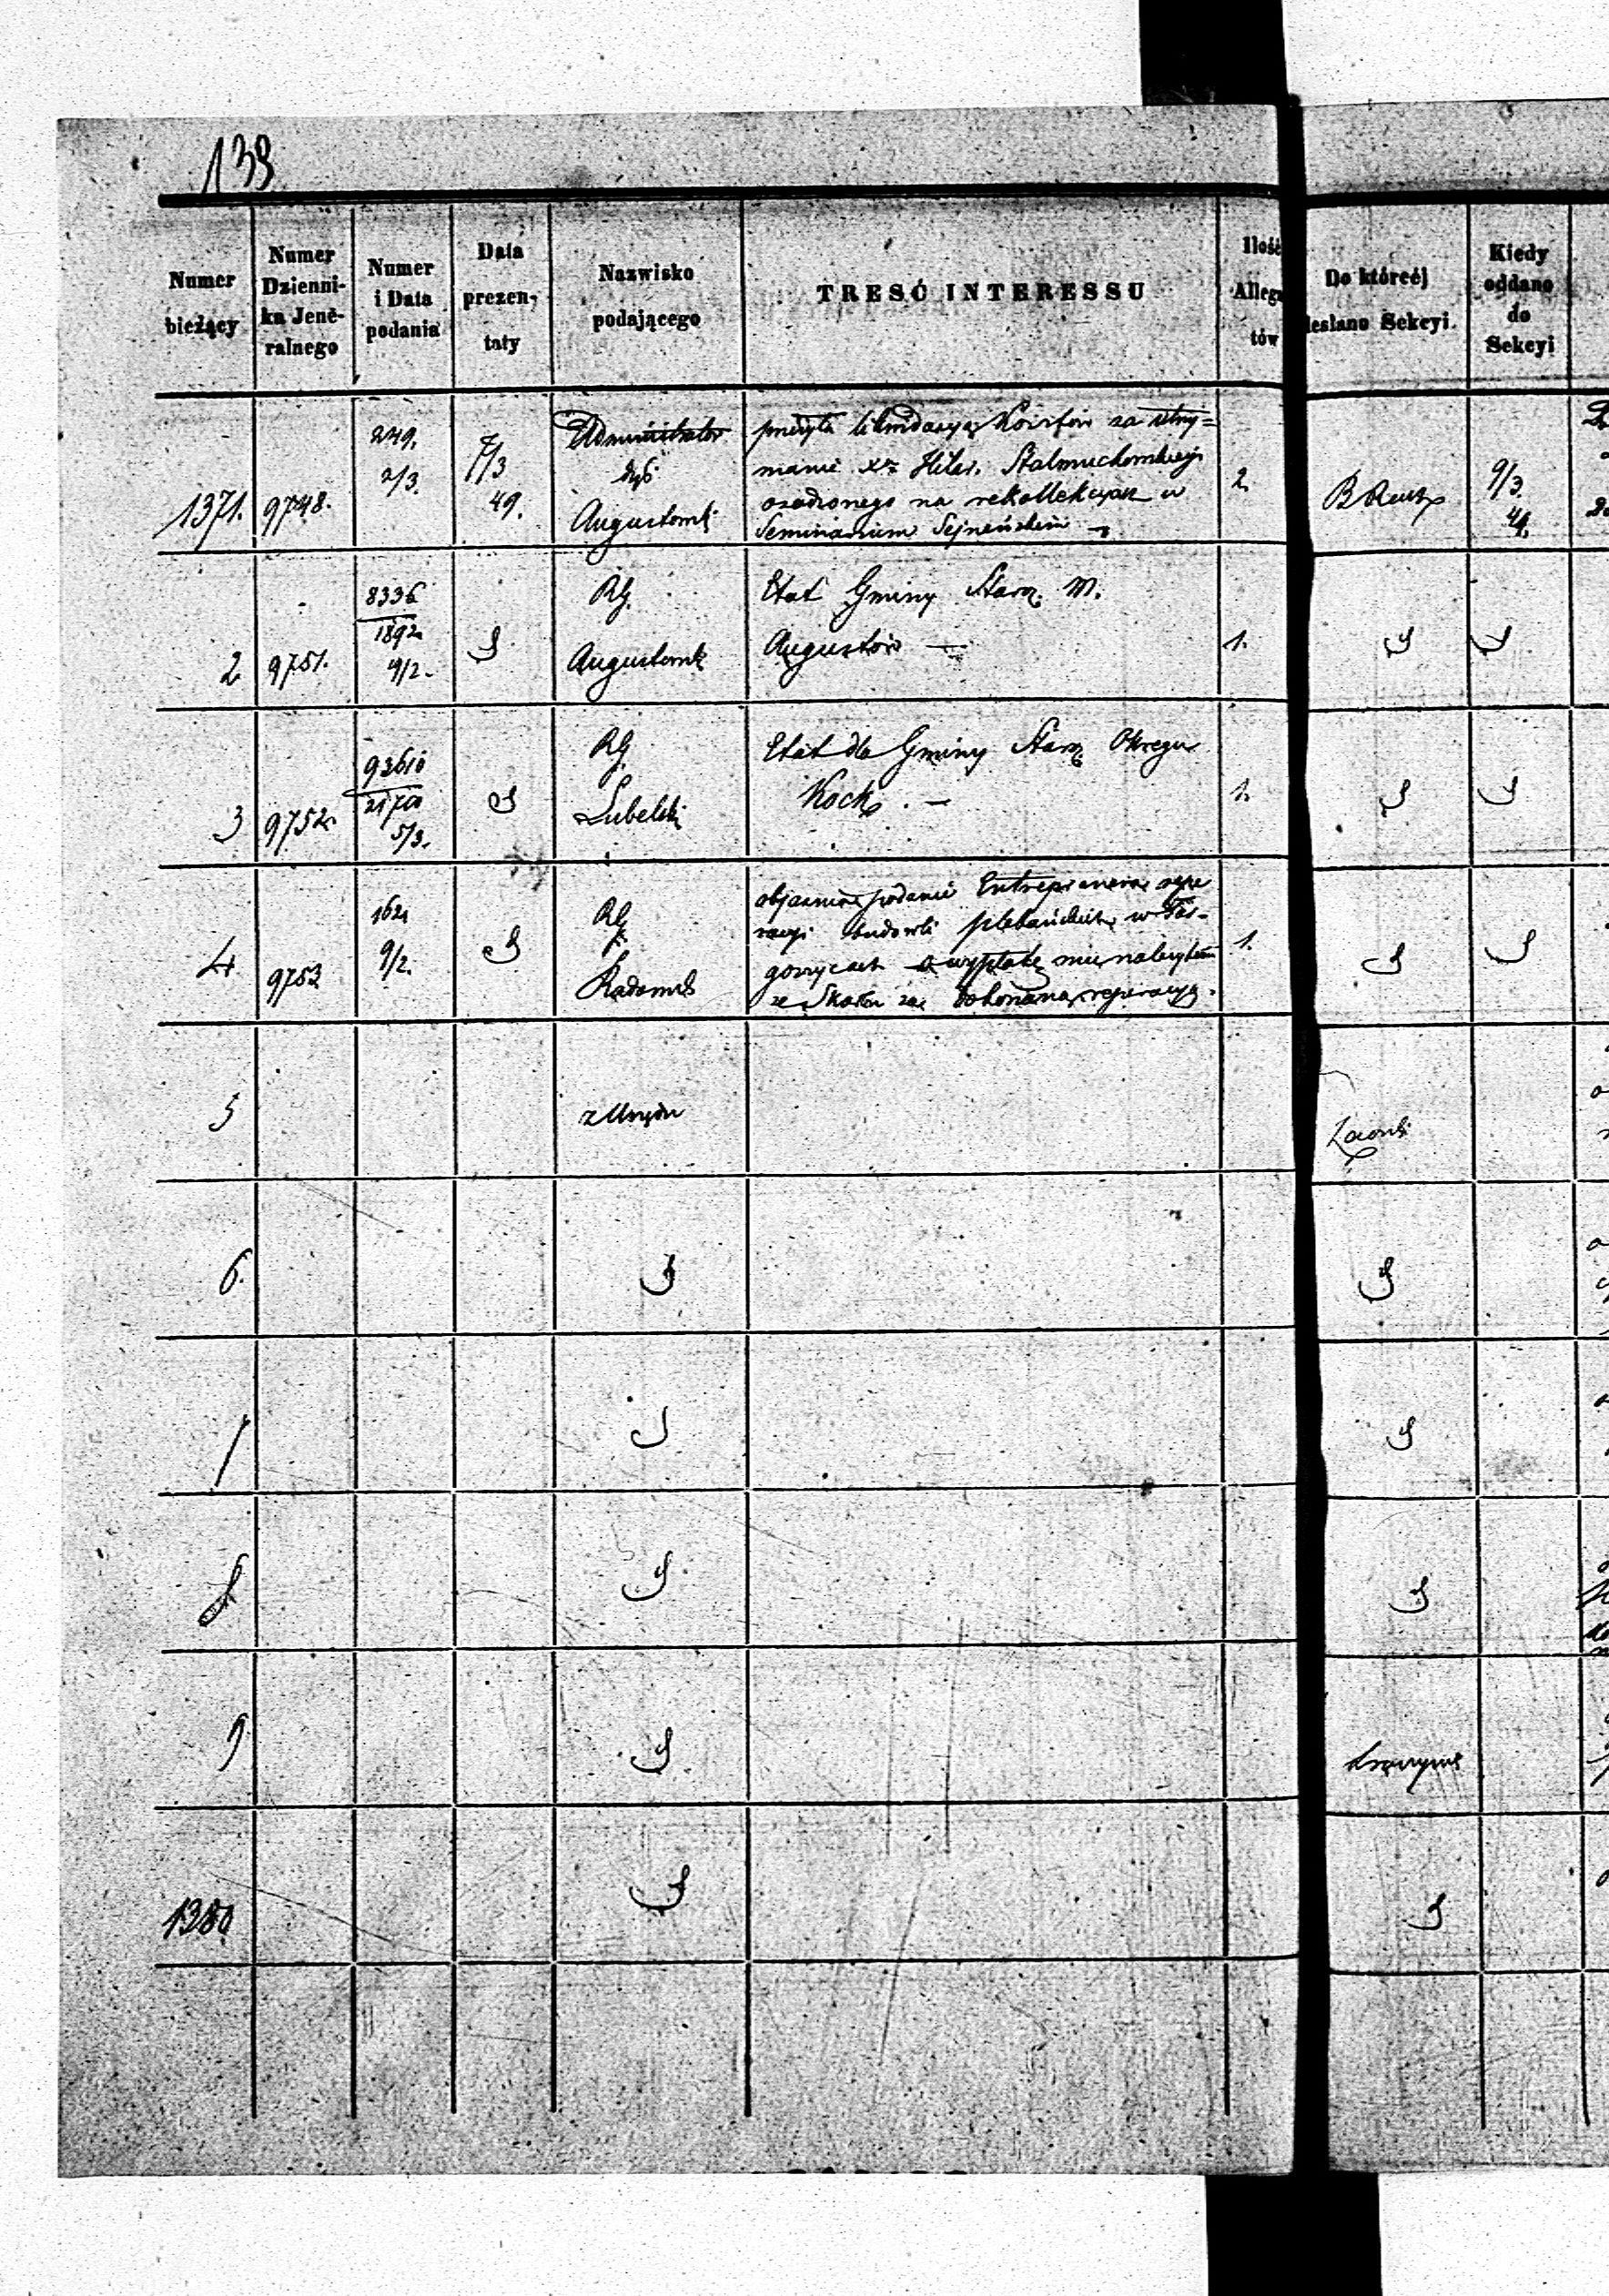 139
Numer bieżący
Numer Dzienni-ka Jene-ralnego
Numer i Data podania
Data prezen-taty
Nazwisko podającego
TREŚĆ INTERESSU
Ilość Allega tów
Do któreéj esłano Sekcyi.
Kiedy oddano do Sekcyi
1371.
9748.
249.
2/3.
7/3
49.
Administrator
dyć.
Augustowski
likwidacyą Kosztów za utrzy=
manie xz Hilar.
osadzonego na rekollekcyach w
Seminarium Sejneńskim —
2.
9/3.
49.
2
9751.
8336
1892
9/2.
RG.
Augustowski
Etat Gminy Staroz. M.
Augustów —
1.
3
9752
93610
21700
5/3.
RG.
Lubelski
Etat dla Gminy Staroz Okręgu
Kock. —
1.
4.
9753
162
9/2.
RG.
Radomski
objaśnia podanie Entreprenera repe
racyi budowli plebańskich w
gorzycach o wypłatę mu należytości
ze Skarbu za dokonaną reperacyą.
1.
5
z Urzędu
6.
7
8
9
1380